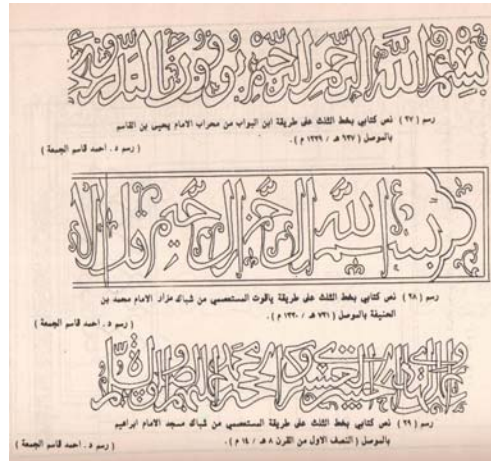 بسم الله الرحمن الرحيم يوفون بالنذر
رسم ( ٢٧ ) نص كتابي بخط الثلث على طريقة ابن البواب من محراب الامام يحيى بن القاسم
بالموصل ( ٦٣٧ هـ / ١٢٣٩ م ) .
( رسم د . احمد قاسم الجمعة )
بسم الله الرحمن الرحيم
رسم ( ٢٨ ) نص كتابي بخط الثلث على طريقة ياقوت المستعصمي من شباك مزار الامام محمد بن
الحنيفة بالموصل ( ٧٣١ هـ / ١٣٣٠ م ) .
( رسم د . احمد قاسم الجمعة )
رسم ( ٢٩ ) نص كتابي بخط الثلث على طريقة المستعصمي من شباك مسجد الامام ابراهيم
بالموصل ( النصف الاول من القرن ٨ هـ / ١٤ م ) .
( رسم د . احمد قاسم الجمعة )